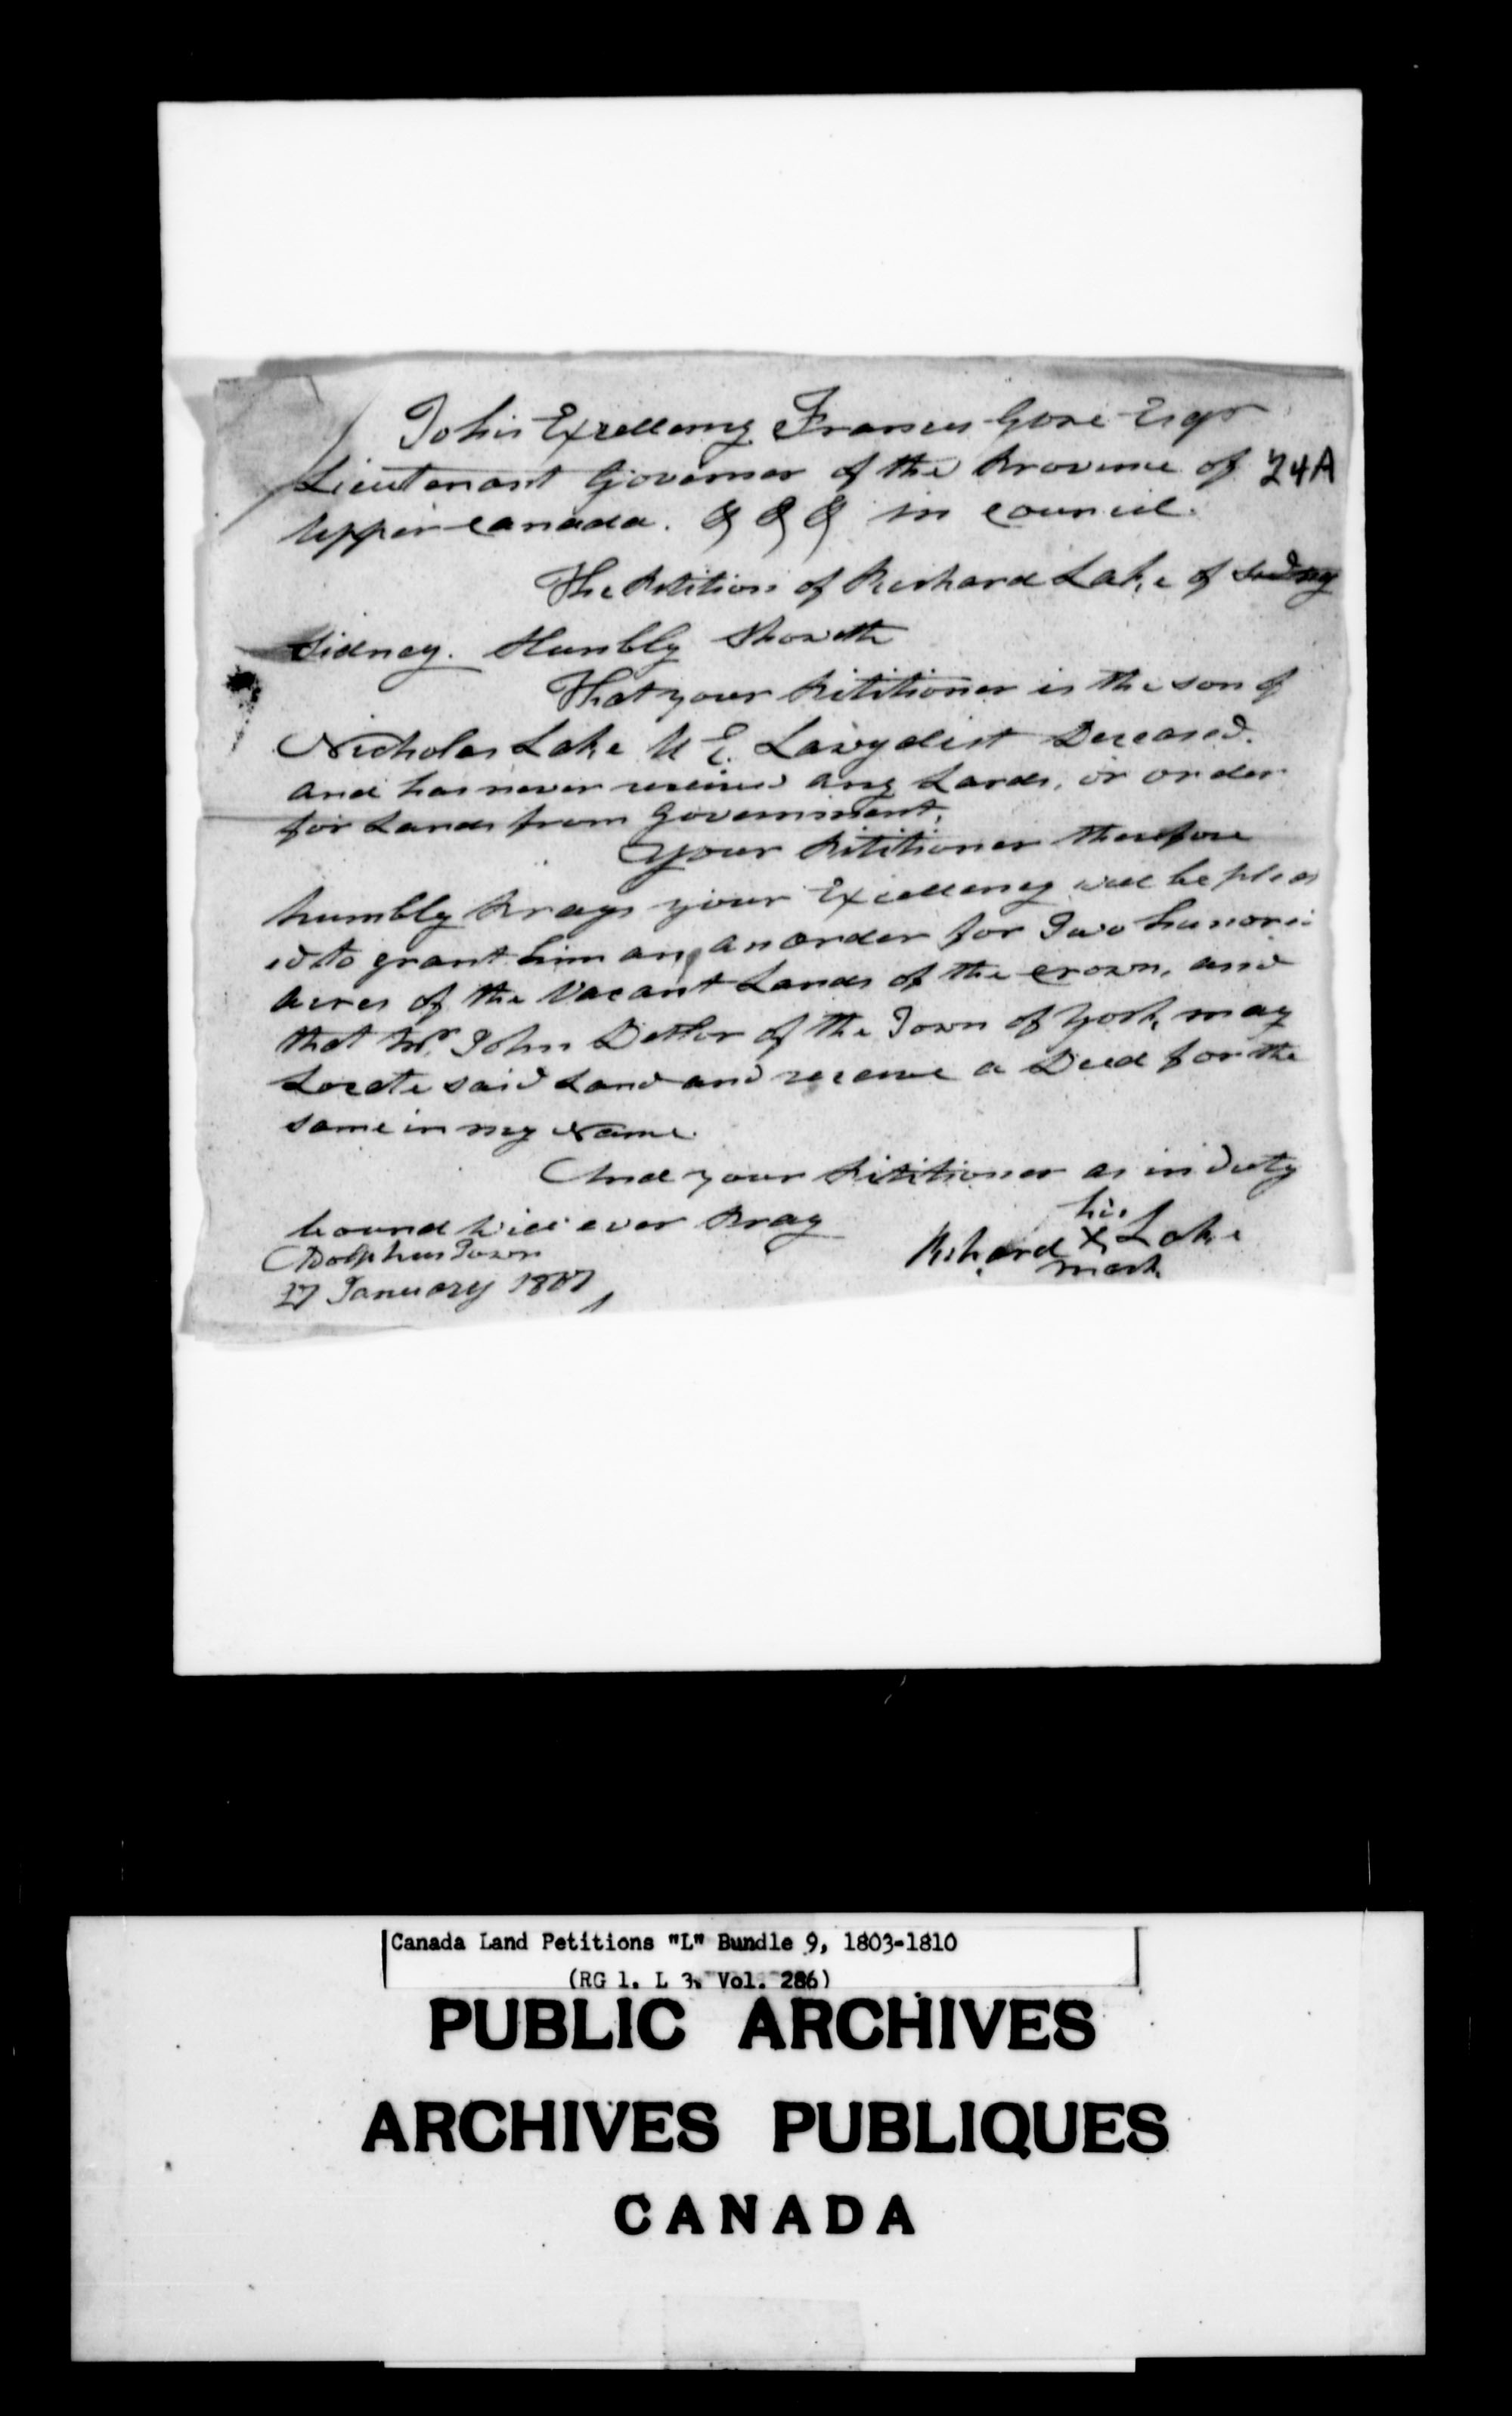 To his Excellency Francis Gore Esqr
Lieutenant Governor of the Province of 24A
Upper Canada. & & & in Council.
The Petition of Richard Lake of
Sidney. Humbly Sheweth
That your Petitioner is the son of
Nicholas Lake U E. Lawyalist Deceased.
and has never received any Lands, or order
for Lands from Government.
Your Petitioner therefore
humbly Prays your Excellency will be pleas
ed to grant him an order for Two hundred
acres of the Vacant Lands of the Crown, and
that Mr. John Detlor of the Town of York, may
Locate said Land and receive a Deed for the
same in my Name.
And your Petitioner as in Duty
bound will ever Pray
his
Richard X Lake
mark
Adolphus Town
27 January 1807
Canada Land Petitions "L" Bundle 9, 1803-1810
(RG 1, L 3, Vol. 286)
PUBLIC ARCHIVES
ARCHIVES PUBLIQUES
CANADA